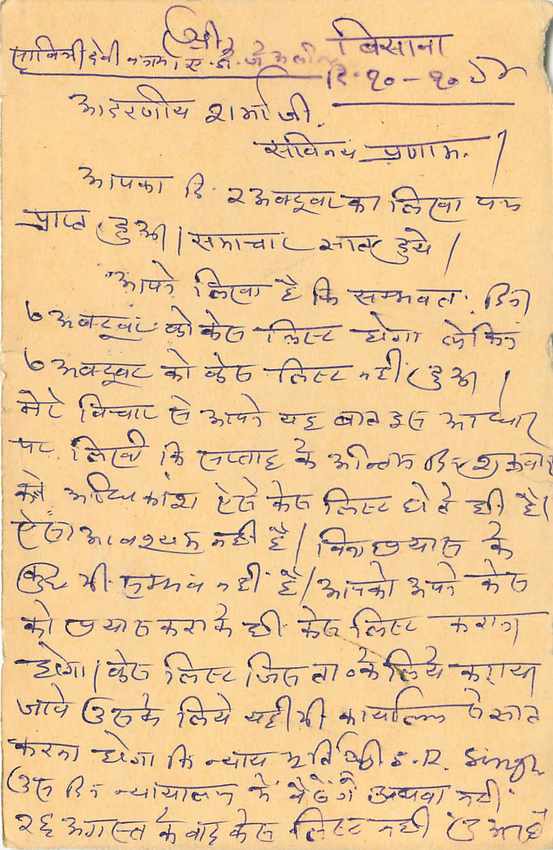 श्री बिसाना
सावित्री देवी बनाम एस. डी. जे.
दि. १०-१०
आदरणीय शर्मा जी,
सविनय प्रणाम. /
आपका दि. २ अक्टूबर का लिखा पत्र
प्राप्त हुआ | समाचार ज्ञात हुये /
आपने लिखा है कि सम्भवतः दिन
७ अक्टूबर को केस लिस्ट होगा लेकिन
७ अक्टूबर को केस लिस्ट नहीं हुआ /
मेरे विचार से आपने यह बात इस आधार
पर लिखी कि सप्ताह के अन्तिम दिन शुक्रवार
को अधिकांश ऐसे केस लिस्ट होते ही हैं|
ऐसा आवश्यक नहीं है / बिना प्रयास के
कुछ भी सम्भव नहीं है / आपको अपने केस
को प्रयास कराके ही केस लिस्ट कराना
होगा | केस लिस्ट जिस ता० के लिये कराया
जावे उसके लिये यही भी कार्यालय से ज्ञात
करना होगा कि न्याय मूर्ति श्री S.R. Singh
उस दिन न्यायालय में बैठेंगे अथवा नहीं.
२६ अगस्त के बाद केस लिस्ट नहीं हुआ है